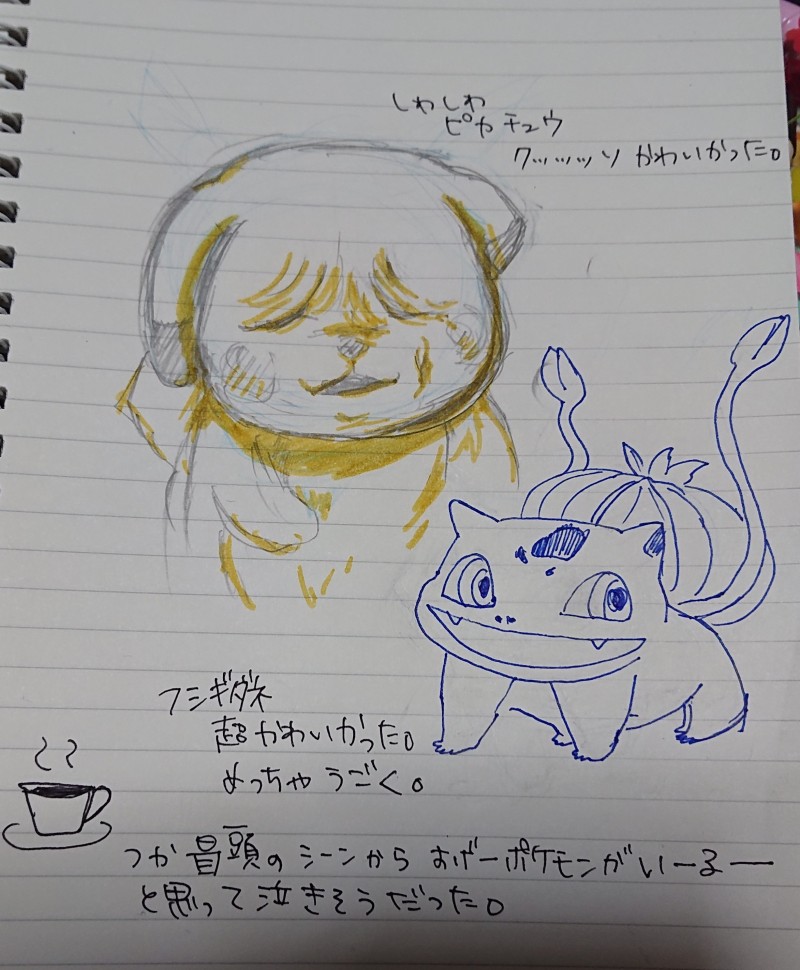 しわしわ
ピカチュウ
クッッッソ かわいかった。
フシギダネ
超かわいかった。
めっちゃ うごく。
つか冒頭のシーンから おげーポケモンがいーるー
と思って泣きそうだった。